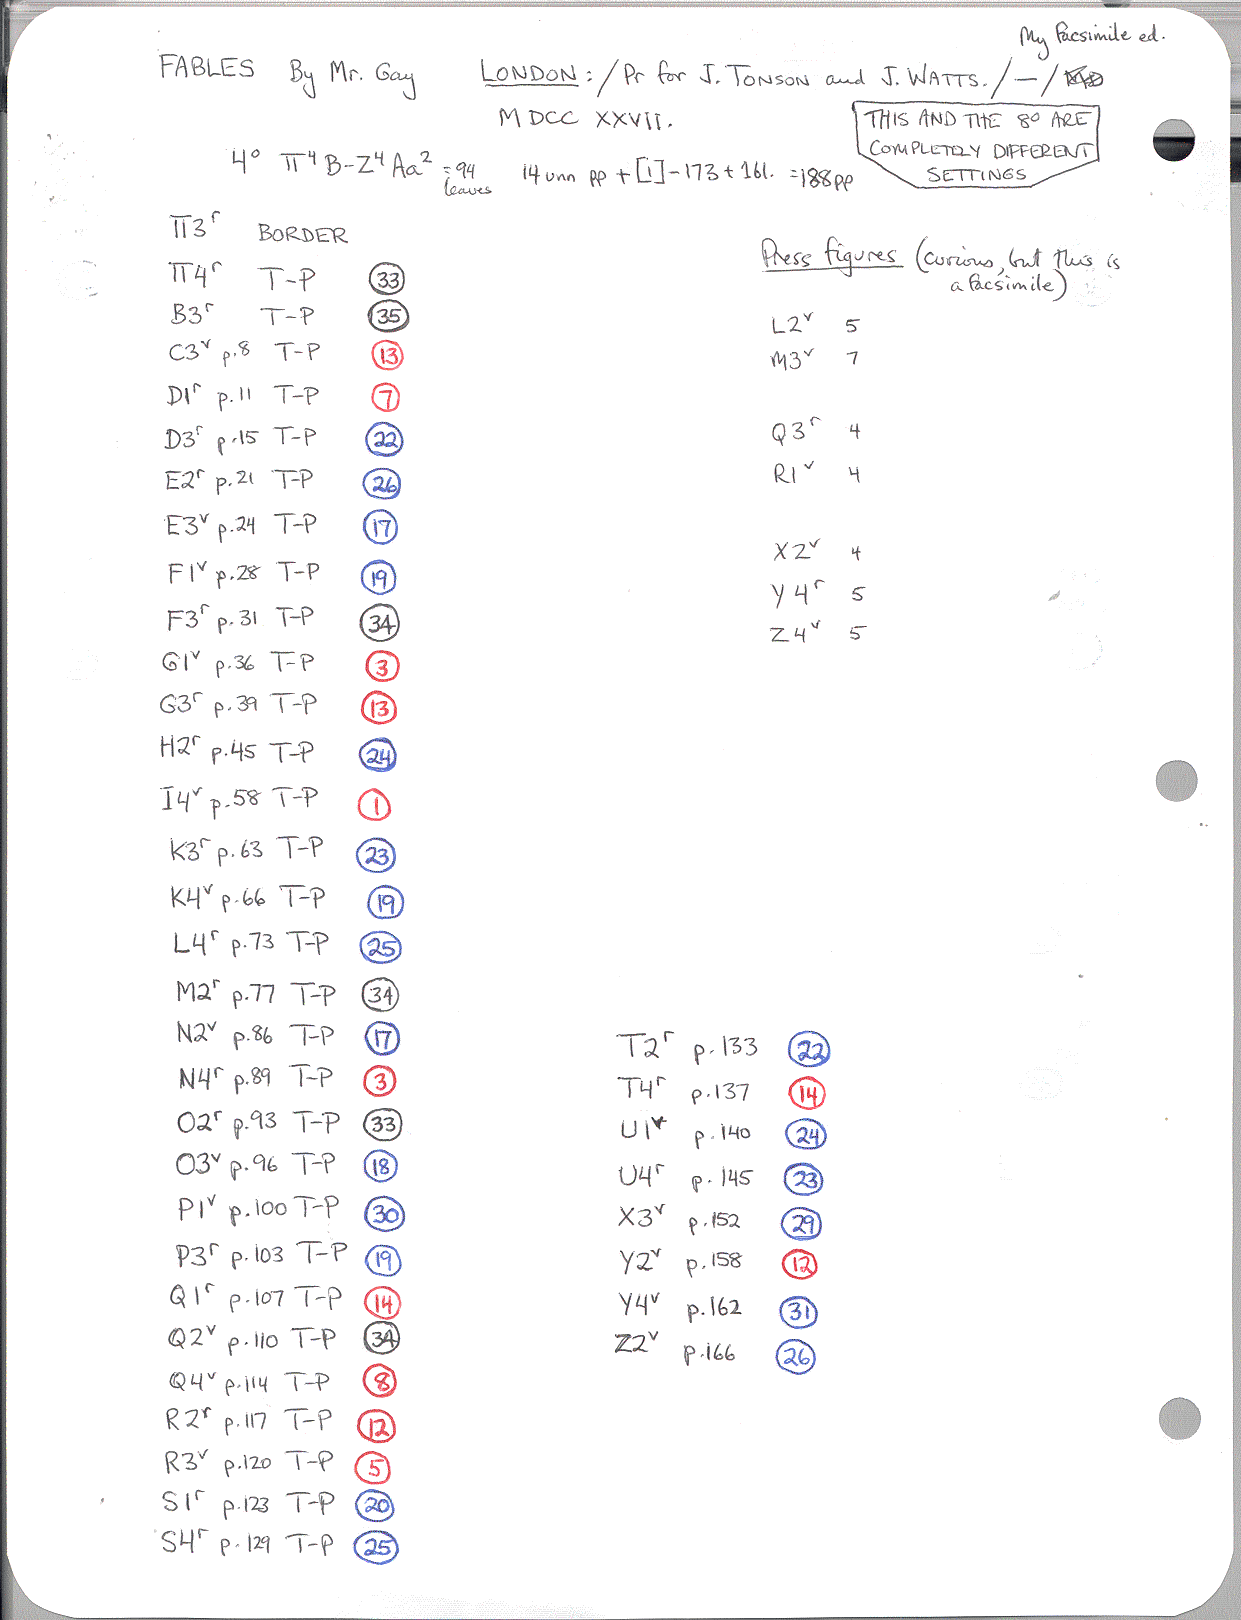 My facsimile ed.
FABLES By Mr. Gay LONDON: / Pr for J. TONSON and J. WATTS. / — /
MDCC XXVII.
THIS AND THE 8º ARE
COMPLETELY DIFFERENT
SETTINGS
4º π⁴ B-Z⁴ Aa² = 94 leaves 14 unn pp + [1]-173 + 1bl. = 188pp
π3ʳ BORDER
π4ʳ T-P 33
B3ʳ T-P 35
C3ᵛ p.8 T-P 13
D1ʳ p.11 T-P 7
D3ʳ p.15 T-P 22
E2ʳ p.21 T-P 26
E3ᵛ p.24 T-P 17
F1ᵛ p.28 T-P 19
F3ʳ p.31 T-P 34
G1ᵛ p.36 T-P 3
G3ʳ p.39 T-P 13
H2ʳ p.45 T-P 24
I4ᵛ p.58 T-P 1
K3ʳ p.63 T-P 23
K4ᵛ p.66 T-P 19
L4ʳ p.73 T-P 25
M2ʳ p.77 T-P 34
N2ᵛ p.86 T-P 17
N4ʳ p.89 T-P 3
O2ʳ p.93 T-P 33
O3ᵛ p.96 T-P 18
P1ᵛ p.100 T-P 30
P3ʳ p.103 T-P 19
Q1ʳ p.107 T-P 14
Q2ᵛ p.110 T-P 34
Q4ᵛ p.114 T-P 8
R2ʳ p.117 T-P 12
R3ᵛ p.120 T-P 5
S1ʳ p.123 T-P 20
S4ʳ p.129 T-P 25
Press figures (curious, but this is
a facsimile)
L2ᵛ 5
M3ᵛ 7
Q3ʳ 4
R1ᵛ 4
X2ᵛ 4
Y4ʳ 5
Z4ᵛ 5
T2ʳ p.133 22
T4ʳ p.137 14
U1ᵛ p.140 24
U4ʳ p.145 23
X3ᵛ p.152 29
Y2ᵛ p.158 12
Y4ᵛ p.162 31
Z2ᵛ p.166 26